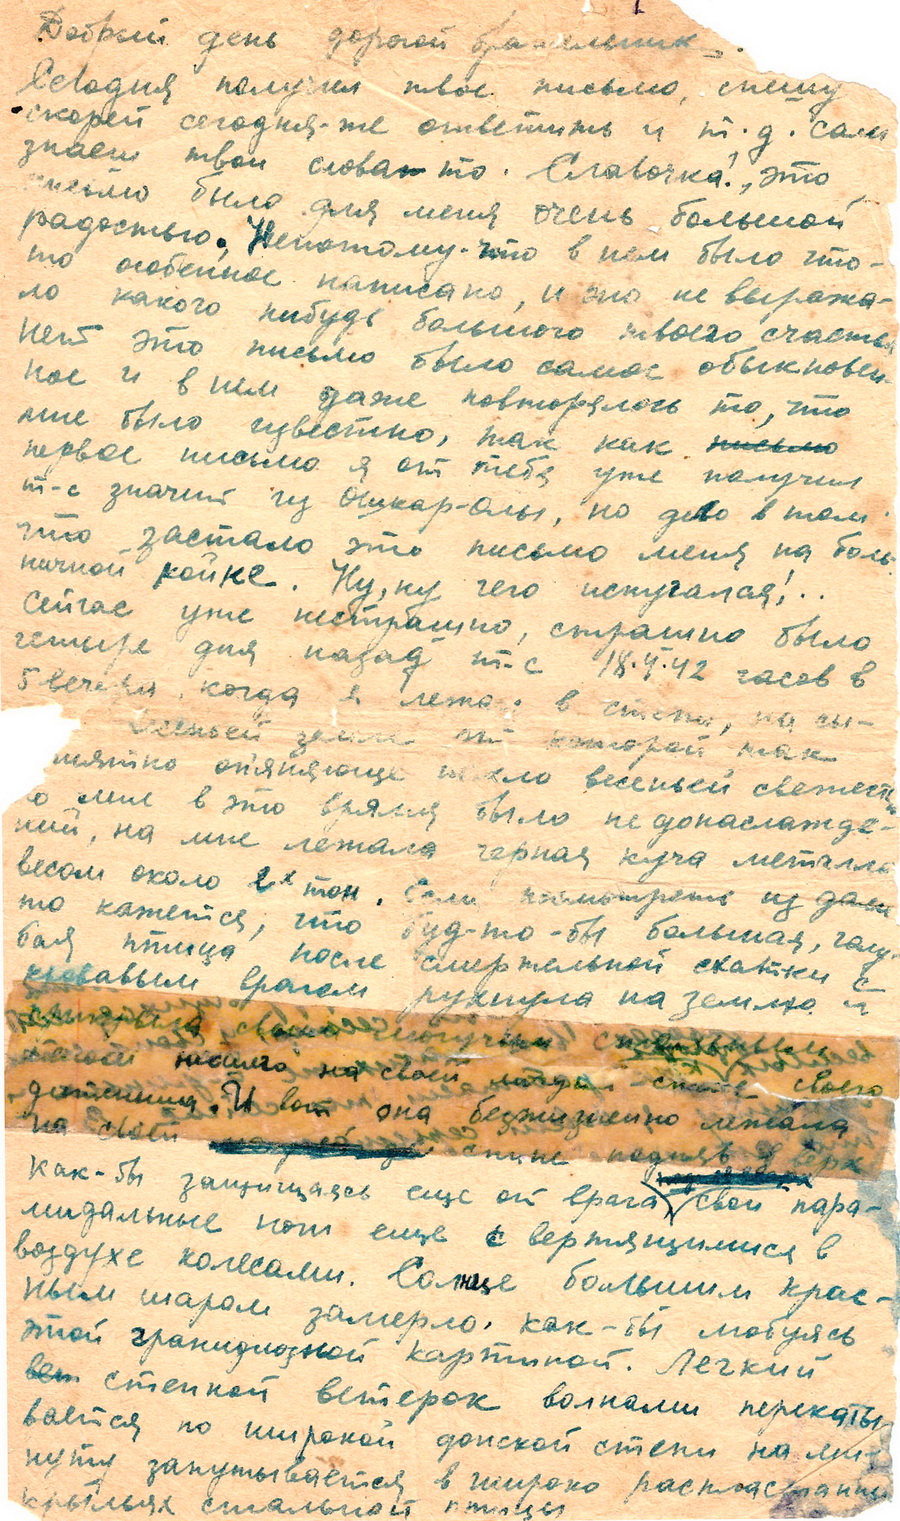 Добрый день дорогой брательник.
Сегодня получил твое письмо, спешу
скорей сегодня-же ответить и т.д. сам
знаеш твои слова то. Славочка!, это
письмо было для меня очень большой
радостью, Непотому-что в нем было что-
то особенное написано, и это не выража-
ло какого нибудь большого твоего счастья
Нет это письмо было самое обыкновен-
ное и в нем даже повторялось то, что
мне было известно, так как письмо
первое письмо я от тебя уже получил
т-е значит из Ошкар-олы, но дело в том
что застало это письмо меня на боль-
ничной койке. Ну, ну чего испугался!..
Сейчас уже нестрашно, страшно было
четыре дня назад т-е 18.4.42 часов в
5 вечера, когда я лежал в степи, на сы-
весеней земле от которой так
опяняюще пахло весеньей свежестью
о мне в это время было недонаслажде-
ний, на мне лежала черная куча металла
весом около 2х тон. Если посмотреть из дали
то кажется, что буд-то-бы большая, голу-
бая птица после смертельной схватки с
кровавым врагом рухнула на землю и
прикрыла своим могучим стальным
телом на своей спине своего
детенища. И вот она безжизненно лежала
на своей спине подняв вверх
как-бы защищаясь еще от врага, свои пира-
мидальные ноги еще с вертящимися в
воздухе колесами. Солнце большим крас-
ным шаром замерло, как-бы любуясь
этой грандиозной картиной. Легкий
степной ветерок волнами перекаты-
вается по широкой донской степи на ми-
нуту запутывается в широко распластанных
крыльях стальной птицы